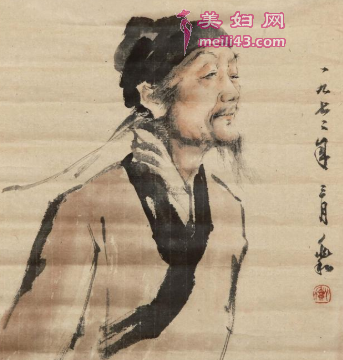 美妇网
meili43.com
一九七二年三月